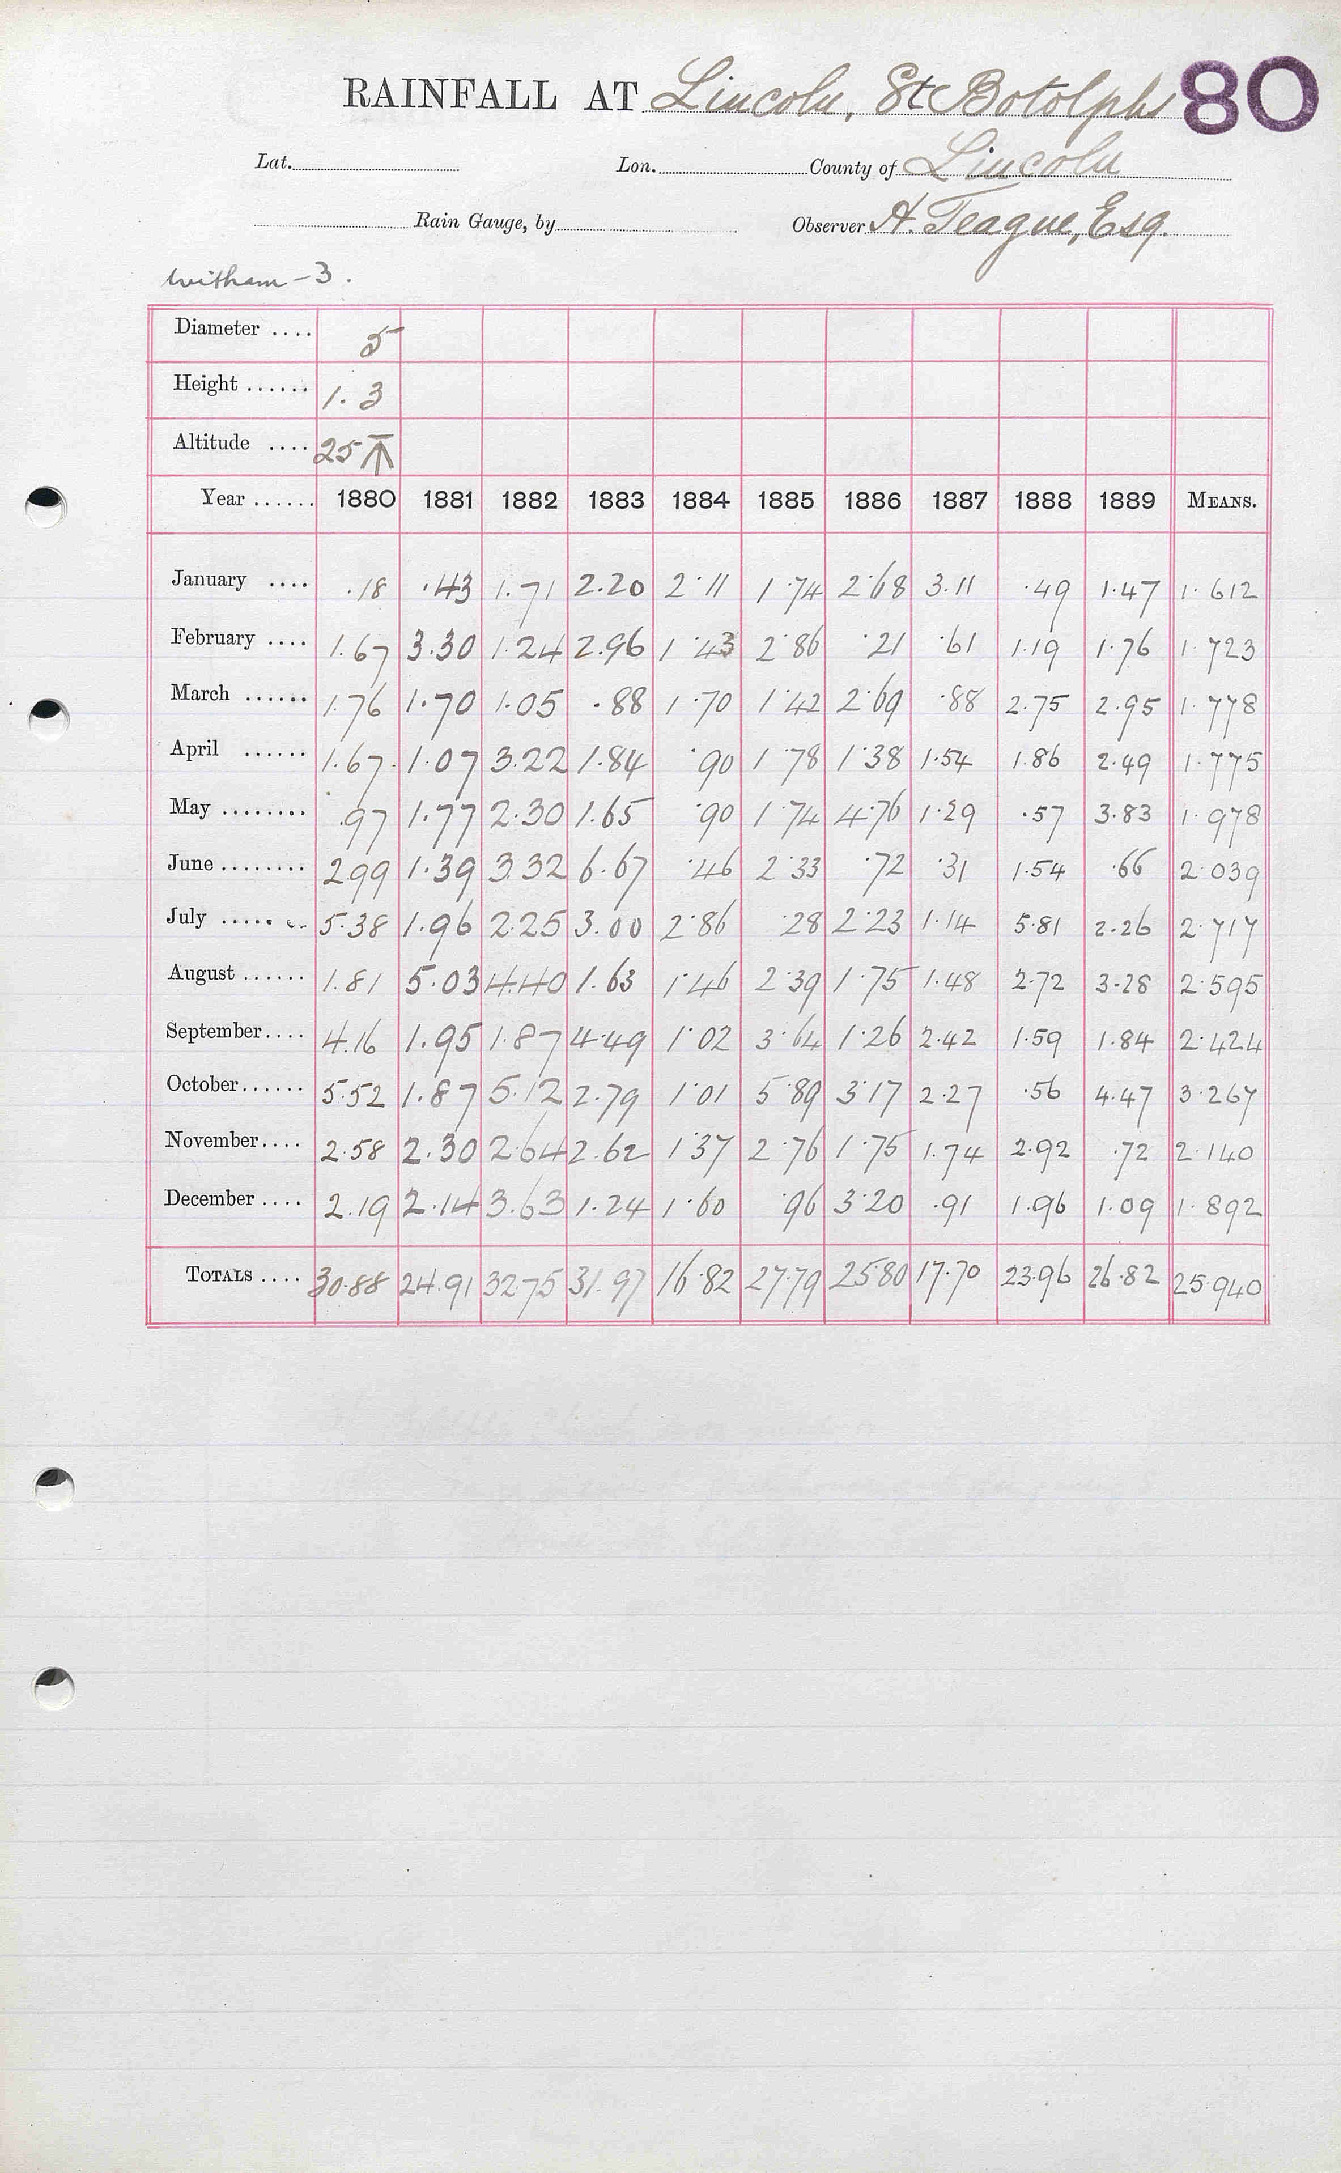 RAINFALL AT Lincoln, St Botolphs 80
Lat. Lon. County of Lincoln
Rain Gauge, by Observer A. Teague, Esq.
Witham – 3.
Diameter .... 5
Height ...... 1. 3
Altitude .... 25
Year ...... 1880 1881 1882 1883 1884 1885 1886 1887 1888 1889 MEANS.
January .... .18 .43 1.71 2.20 2.11 1.74 2.68 3.11 .49 1.47 1.612
February .... 1.67 3.30 1.24 2.96 1.43 2.86 .21 .61 1.19 1.76 1.723
March ...... 1.76 1.70 1.05 .88 1.70 1.42 2.69 .88 2.75 2.95 1.778
April ...... 1.67 1.07 3.22 1.84 .90 1.78 1.38 1.54 1.86 2.49 1.775
May ........ .97 1.77 2.30 1.65 .90 1.74 4.76 1.29 .57 3.83 1.978
June ........ 2.99 1.39 3.32 6.67 .46 2.33 .72 .31 1.54 .66 2.039
July ........ 5.38 1.96 2.25 3.00 2.86 .28 2.23 1.14 5.81 2.26 2.717
August ...... 1.81 5.03 4.40 1.63 1.46 2.39 1.75 1.48 2.72 3.28 2.595
September .... 4.16 1.95 1.87 4.49 1.02 3.64 1.26 2.42 1.59 1.84 2.424
October ...... 5.52 1.87 5.12 2.79 1.01 5.89 3.17 2.27 .56 4.47 3.267
November .... 2.58 2.30 2.64 2.62 1.37 2.76 1.75 1.74 2.92 .72 2.140
December .... 2.19 2.14 3.63 1.24 1.60 .96 3.20 .91 1.96 1.09 1.892
TOTALS .... 30.88 24.91 32.75 31.97 16.82 27.79 25.80 17.70 23.96 26.82 25.940